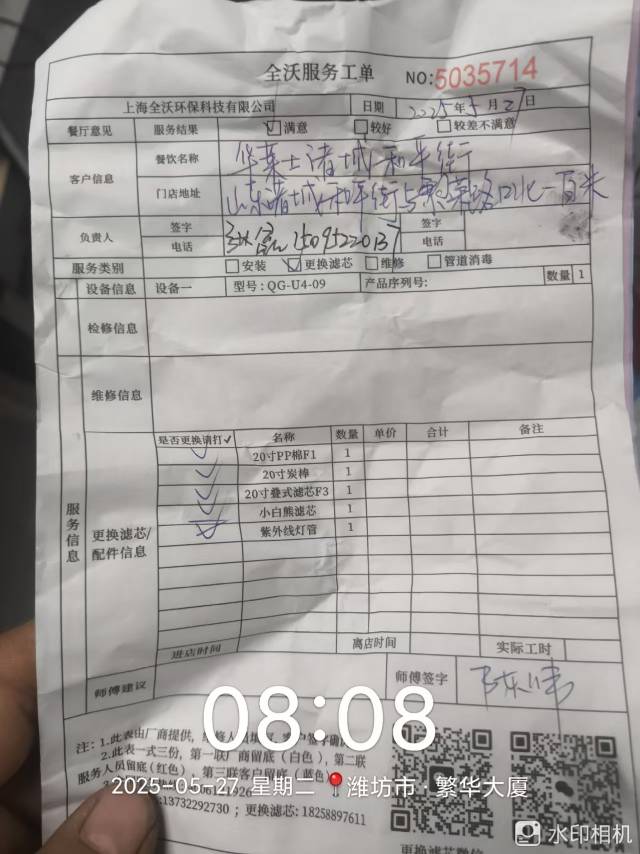 全沃服务工单 NO:5035714
上海全沃环保科技有限公司 日期 2025年5月27日
餐厅意见 服务结果 ☑满意 □较好 □较差不满意
客户信息 餐饮名称 华莱士诸城和平街
门店地址 山东诸城和平街与 路口北一百米
负责人 签字 签字
电话 电话
服务类别 □安装 ☑更换滤芯 □维修 □管道消毒
设备信息 设备一 型号:QG-U4-09 产品序列号: 数量 1
检修信息
维修信息
服务信息
更换滤芯/配件信息
是否更换请打✓ 名称 数量 单价 合计 备注
✓ 20寸PP棉F1 1
✓ 20寸炭棒 1
✓ 20寸叠式滤芯F3 1
✓ 小白熊滤芯 1
紫外线灯管 1
进店时间 离店时间 实际工时
师傅建议 师傅签字 陈伟
注:1.此表由厂商提供,
2.此表一式三份,第一联厂商留底(白色),第二联
服务人员留底(红色),第三联客户留底(蓝色)
13732292730;更换滤芯:18258897611
更换滤芯微信
08:08
2025-05-27 星期二 潍坊市·繁华大厦
水印相机